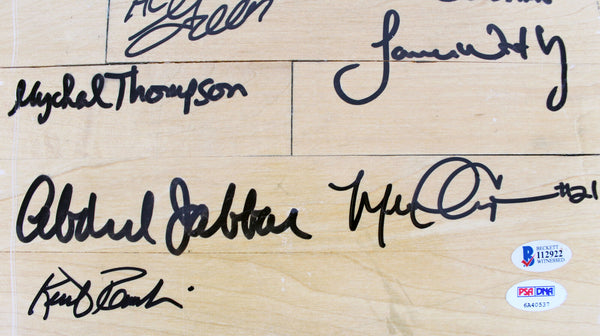 AC
Green
James Worthy
Mychal Thompson
Abdul Jabbar
#21
Kurt Rambis
B
BECKETT
112922
WITNESSED
PSA DNA
6A40537